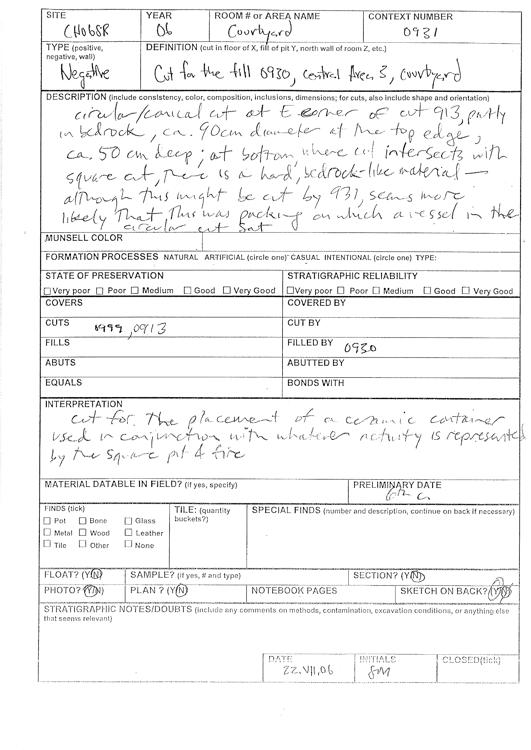 SITE YEAR ROOM # or AREA NAME CONTEXT NUMBER
CH06SR 06 Courtyard 0931
TYPE (positive, negative, wall) DEFINITION (cut in floor of X, fill of pit Y, north wall of room Z, etc.)
Negative Cut for the fill 0930, central Area 3, courtyard
DESCRIPTION (include consistency, color, composition, inclusions, dimensions; for cuts, also include shape and orientation)
circular/conical cut at E corner of cut 913, partly
in bedrock, ca. 90cm diameter at the top edge,
ca. 50 cm deep; at bottom, where cut intersects with
square cut, there is a hard, bedrock-like material —
although this might be cut by 931, seems more
likely that this was packing on which a vessel in the
circular cut sat
MUNSELL COLOR
FORMATION PROCESSES NATURAL ARTIFICIAL (circle one) CASUAL INTENTIONAL (circle one) TYPE:
STATE OF PRESERVATION STRATIGRAPHIC RELIABILITY
Very poor Poor Medium Good Very Good Very poor Poor Medium Good Very Good
COVERS COVERED BY
CUTS 0999, 0913 CUT BY
FILLS FILLED BY 0930
ABUTS ABUTTED BY
EQUALS BONDS WITH
INTERPRETATION
cut for the placement of a ceramic container
used in conjunction with whatever activity is represented
by the square pit & fire
MATERIAL DATABLE IN FIELD? (if yes, specify) PRELIMINARY DATE
6th c
FINDS (tick) TILE: (quantity buckets?) SPECIAL FINDS (number and description, continue on back if necessary)
Pot Bone Glass
Metal Wood Leather
Tile Other None
FLOAT? (Y/N) SAMPLE? (if yes, # and type) SECTION? (Y/N)
PHOTO? (Y/N) PLAN ? (Y/N) NOTEBOOK PAGES SKETCH ON BACK? (Y/N)
STRATIGRAPHIC NOTES/DOUBTS (include any comments on methods, contamination, excavation conditions, or anything else
that seems relevant)
DATE INITIALS CLOSED(tick)
22.VII.06 SM